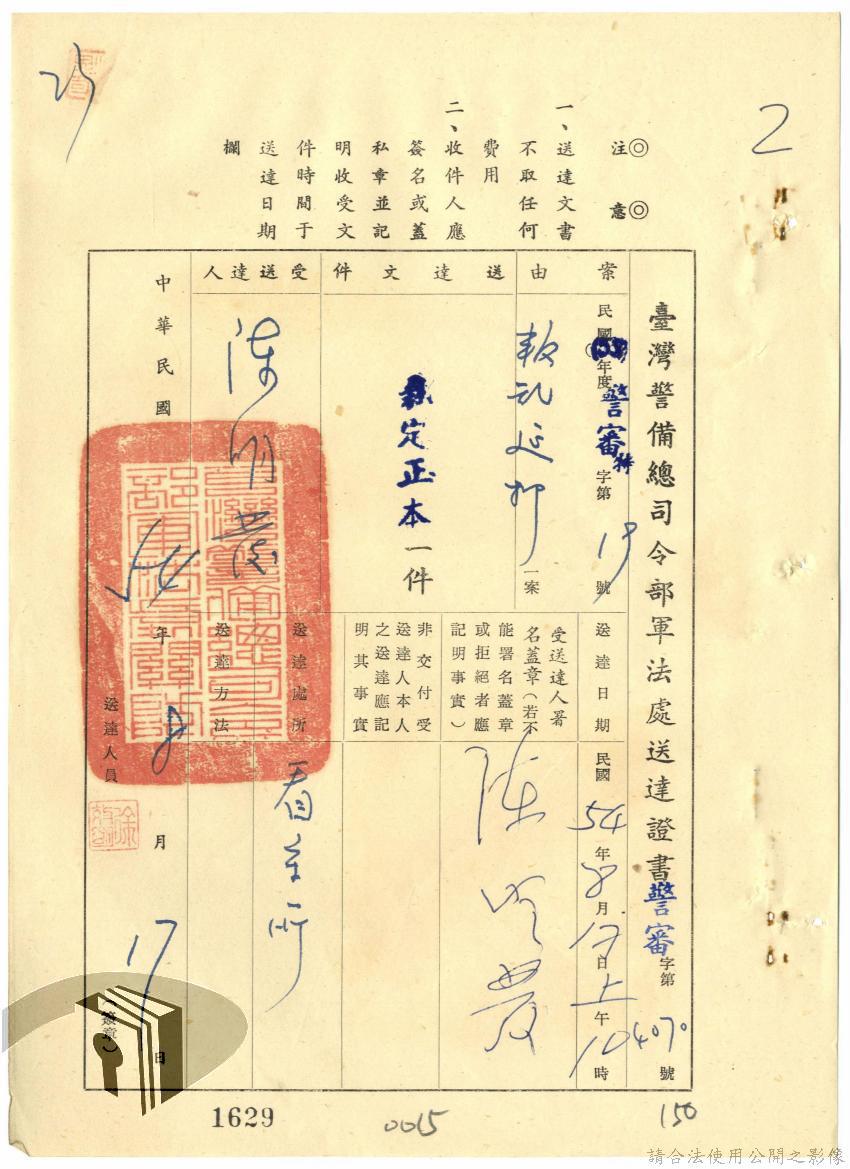 2
◎注　意◎
一、送達文書
不取任何
費用
二、收件人應
簽名或蓋
私章並記
明收受文
件時間于
送達日期
欄
臺灣警備總司令部軍法處送達證書 警審字第4070號
案由
民國 年度警審特字第19號
叛乱延押一案
送達文件
裁定正本一件
受送達人
陳明發
送達日期
民國54年8月17日上午10時
受送達人署
名蓋章（若不
能署名蓋章
或拒絕者應
記明事實）
陳明發
非交付受
送達人本人
之送達應記
明其事實
送達處所
看守所
送達方法
中華民國54年8月17日
送達人員
（簽章）
1629
0015
150
請合法使用公開之影像